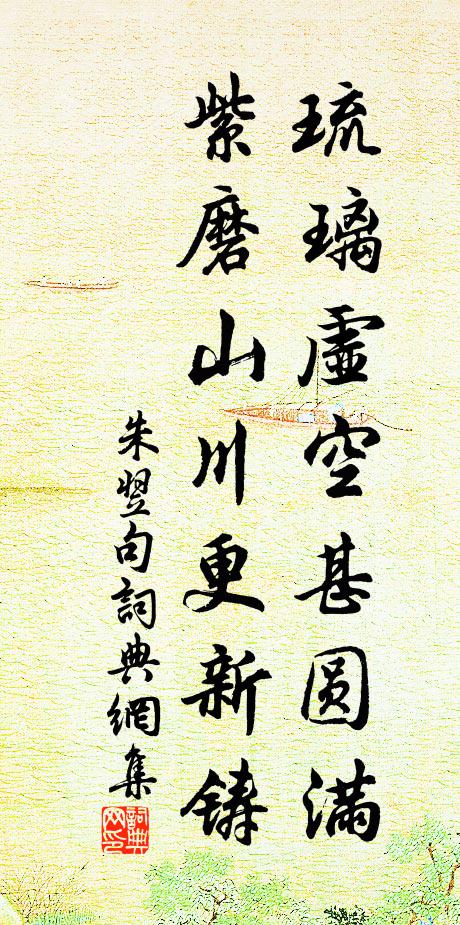 琉璃虛空甚圆滿
紫磨山川更新鋳
朱翌句詞典網集
詞典
网印